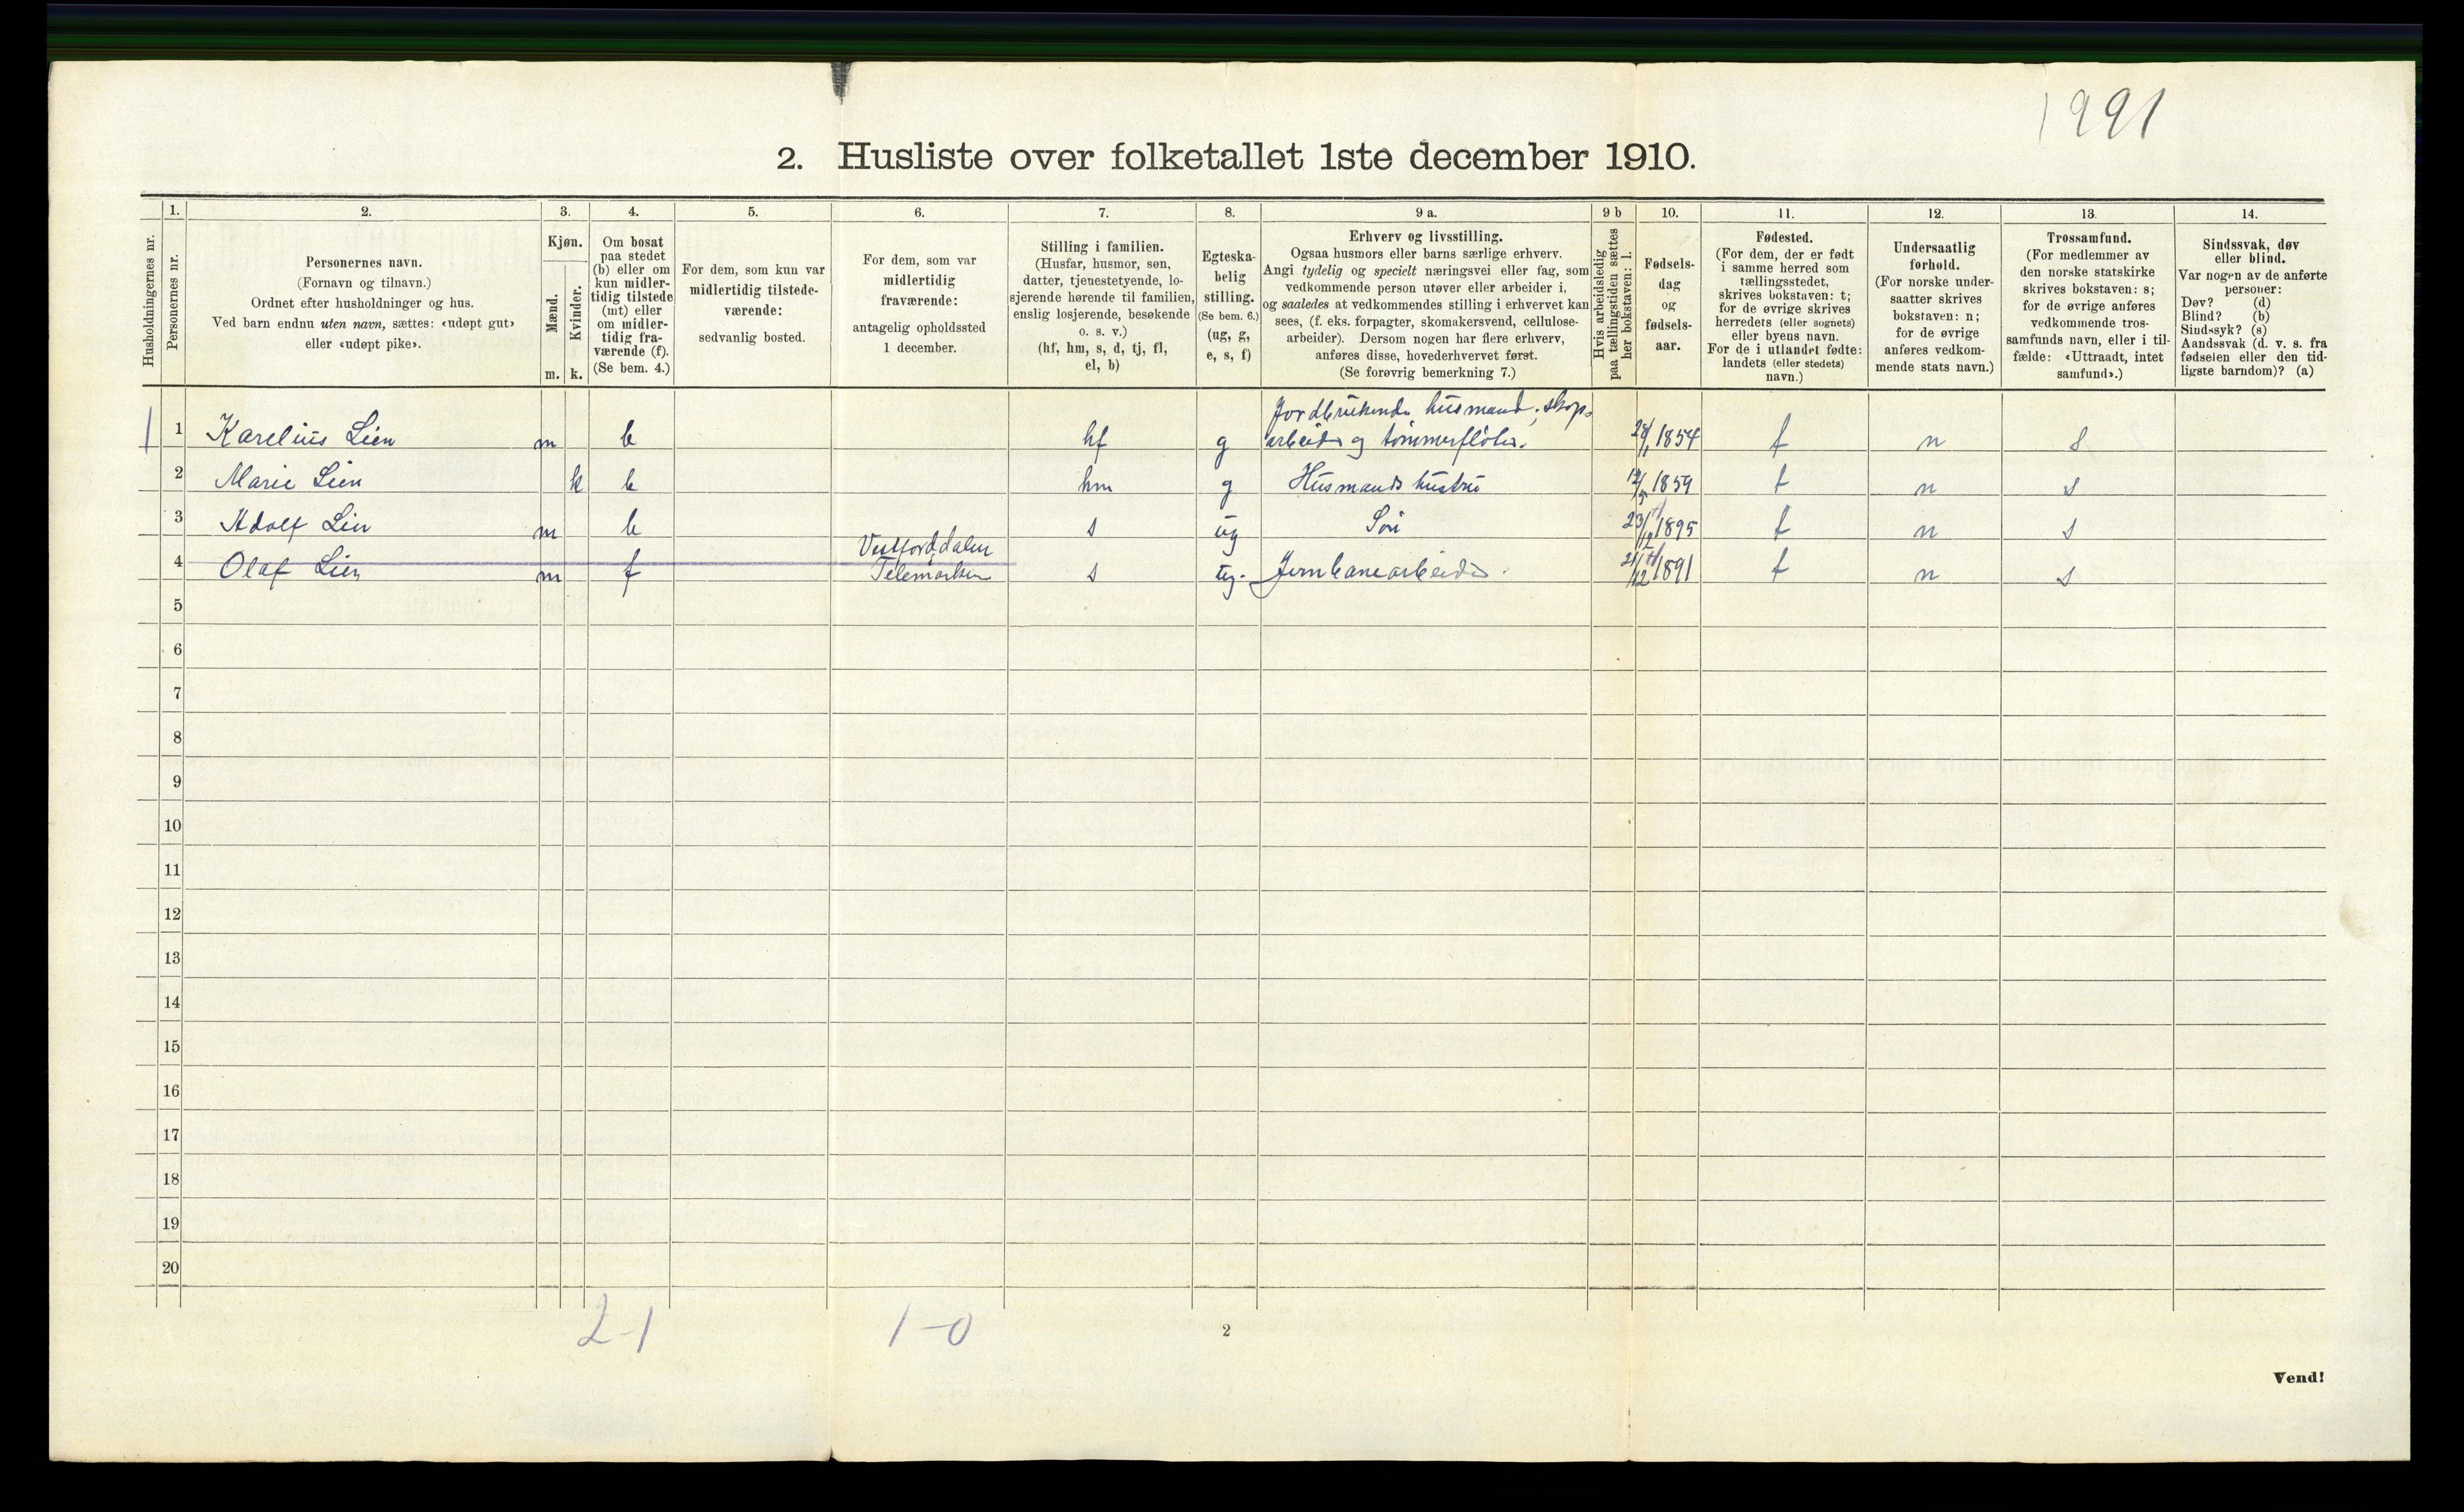 1991
2. Husliste over folketallet 1ste december 1910.
Husholdningernes nr.
1.
Personernes nr.
2.
Personernes navn.
(Fornavn og tilnavn.)
Ordnet efter husholdninger og hus.
Ved barn endnu uten navn, sættes: «udøpt gut»
eller «udøpt pike».
3.
Kjøn.
Mænd.
Kvinder.
m. k.
4.
Om bosat
paa stedet
(b) eller om
kun midler-
tidig tilstede
(mt) eller
om midler-
tidig fra-
værende (f).
(Se bem. 4.)
5.
For dem, som kun var
midlertidig tilstede-
værende:
sedvanlig bosted.
6.
For dem, som var
midlertidig
fraværende:
antagelig opholdssted
1 december.
7.
Stilling i familien.
(Husfar, husmor, søn,
datter, tjenestetyende, lo-
sjerende hørende til familien,
enslig losjerende, besøkende
o. s. v.)
(hf, hm, s, d, tj, fl,
el, b)
8.
Egteska-
belig
stilling.
(Se bem. 6.)
(ug, g,
e, s, f)
9 a.
Erhverv og livsstilling.
Ogsaa husmors eller barns særlige erhverv.
Angi tydelig og specielt næringsvei eller fag, som
vedkommende person utøver eller arbeider i,
og saaledes at vedkommendes stilling i erhvervet kan
sees, (f. eks. forpagter, skomakersvend, cellulose-
arbeider). Dersom nogen har flere erhverv,
anføres disse, hovederhvervet først.
(Se forøvrig bemerkning 7.)
9 b
Hvis arbeidsledig
paa tællingstiden sættes
her bokstaven: l.
10.
Fødsels-
dag
og
fødsels-
aar.
11.
Fødested.
(For dem, der er født
i samme herred som
tællingsstedet,
skrives bokstaven: t;
for de øvrige skrives
herredets (eller sognets)
eller byens navn.
For de i utlandet fødte:
landets (eller stedets)
navn.)
12.
Undersaatlig
forhold.
(For norske under-
saatter skrives
bokstaven: n;
for de øvrige
anføres vedkom-
mende stats navn.)
13.
Trossamfund.
(For medlemmer av
den norske statskirke
skrives bokstaven: s;
for de øvrige anføres
vedkommende tros-
samfunds navn, eller i til-
fælde: «Uttraadt, intet
samfund».)
14.
Sindssvak, døv
eller blind.
Var nogen av de anførte
personer:
Døv? (d)
Blind? (b)
Sindssyk? (s)
Aandssvak (d. v. s. fra
fødselen eller den tid-
ligste barndom)? (a)
Jordbrukende husmand, skogs-
1 1 Karelius Lien m b hf g arbeider og tømmerfløter. 28/1 1854 t n s
2 Marie Lien k b hm g Husmands hustru 1859 t n s
3 Adolf Lien m b s ug Søn 23/12 1895 t n s
Vestfjorddalen
4 Olaf Lien m f Telemarken s ug. Jernbanearbeider. 21/12 1891 t n s
5
6
7
8
9
10
11
12
13
14
15
16
17
18
19
20
2-1 1-0
2
Vend!